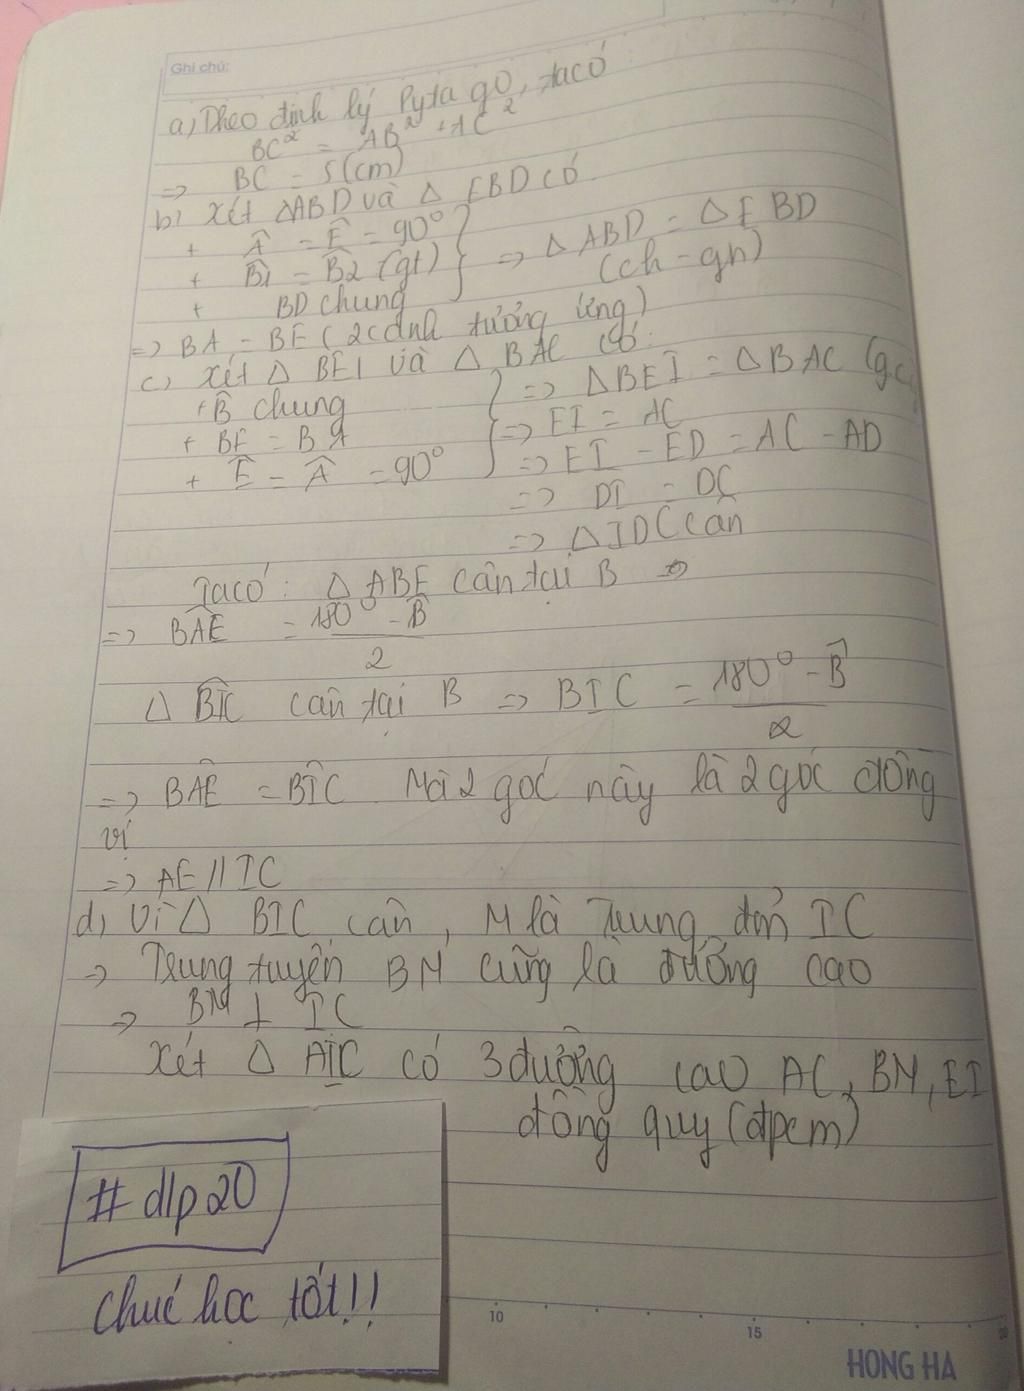 Ghi chú:
a) Theo định lý Pytago, ta có
BC² = AB² + AC²
=> BC = 5(cm)
b) Xét ΔABD và Δ EBD có
+ Â = Ê = 90°
+ B̂1 = B̂2 (gt)
+ BD chung
=> Δ ABD = Δ EBD
(ch - gn)
=> BA = BE (2 cạnh tương ứng)
c) Xét Δ BEI và Δ BAC có:
+ B̂ chung
+ BE = BA
+ Ê = Â = 90°
=> ΔBEI = Δ BAC (gc
=> EI = AC
=> EI - ED = AC - AD
=> DI = DC
=> Δ IDC cân
Ta có: Δ ABE cân tại B =>
=> BÂE = 180° - B̂
2
Δ BIC cân tại B => BIC = 180° - B̂
2
=> BÂE = BÎC. Mà 2 góc này là 2 góc đồng
ví
=> AE // IC
d) Vì Δ BIC cân, M là Trung điểm IC
=> Trung tuyến BM cũng là đường cao
=> BM ⊥ IC
Xét Δ AIC có 3 đường cao AC, BM, EI
đồng quy (đpcm)
# dlp20
chúc học tốt!!
10
15
20
HONG HA